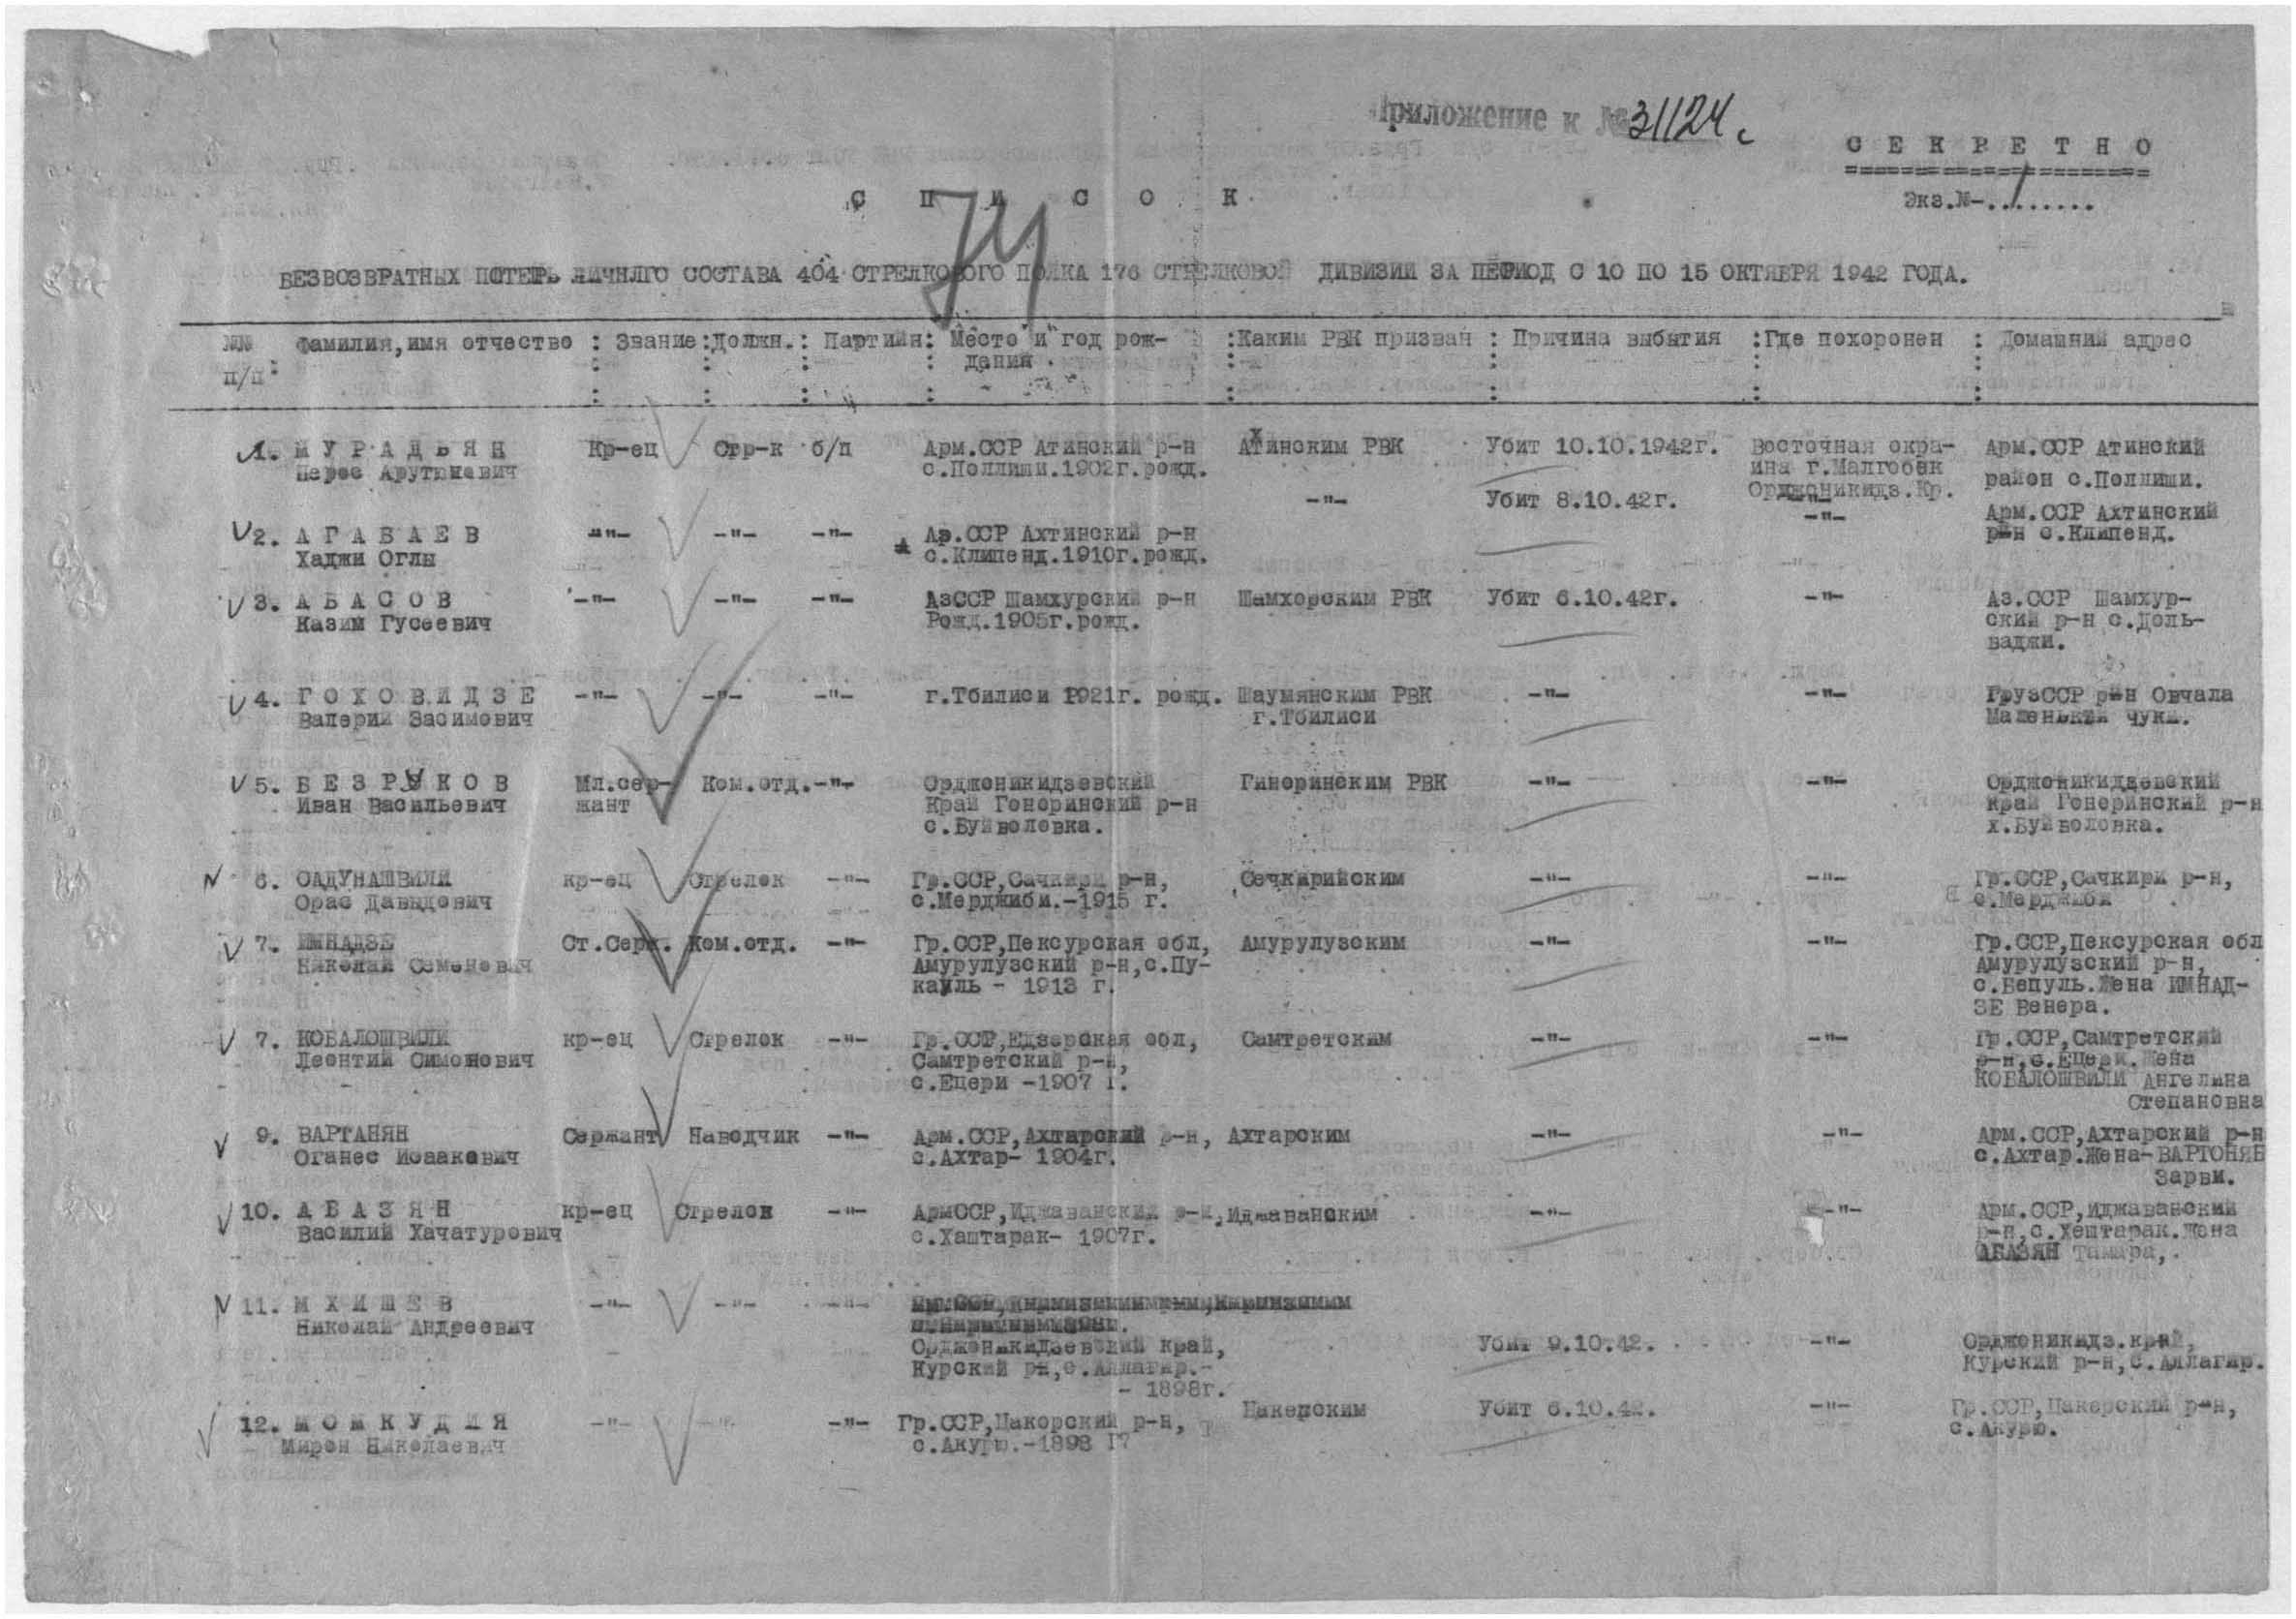 Приложение к №31124с
С Е К Р Е Т Н О
Экз.№-.1.......
С П И С О К
74
БЕЗВОЗВРАТНЫХ ПОТЕРЬ ЛИЧНЛГО СОСТАВА 404 СТРЕЛКОВОГО ПОЛКА 176 СТРЕЛКОВОЙ ДИВИЗИИ ЗА ПЕРИОД С 10 ПО 15 ОКТЯБРЯ 1942 ГОДА.
№№ п/п : Фамилия,имя отчество : Звание : Должн. : Партийн : Место и год рождения : Каким РВК призван : Причина выбытия : Где похоронен : Домашний адрес
1. М У Р А Д Ь Я Н Кр-ец Стр-к б/п Арм.ССР Атинский р-н Ахинским РВК Убит 10.10.1942г. Восточная окра- Арм.ССР Атинский
Перос Арутюнович с.Поллиши.1902г.рожд. ина г.Малгобек район с.Поллиши.
Орджоникидз.Кр.
2. А Г А Б А Е В -"- -"- -"- Аз.ССР Ахтинский р-н -"- Убит 8.10.42г. -"- Арм.ССР Ахтинский
Хаджи Оглы с.Клипенд.1910г.рожд. р-н с.Клипенд.
3. А Б А С О В -"- -"- -"- АзССР Шамхурский р-н Шамхорским РВК Убит 6.10.42г. -"- Аз.ССР Шамхур-
Казим Гусеевич Рожд.1905г.рожд. ский р-н с.Доль-
ваджи.
4. Г О Х О В И Д З Е -"- -"- -"- г.Тбилиси 1921г. рожд. Шаумянским РВК -"- -"- ГрузССР р-н Овчала
Валерий Засимович г.Тбилиси Маленький чукл.
5. Б Е З Р У К О В Мл.сер- Ком.отд. -"- Орджоникидзевский Гинеринским РВК -"- -"- Орджоникидзевский
Иван Васильевич жант Край Генеринский р-н край Генеринский р-н
с.Буйволовка. х.Буйволовка.
6. САДУНАШВИЛИ кр-ец Стрелок -"- Гр.ССР,Сачкири р-н, Сечкирийским -"- -"- Гр.ССР,Сачкири р-н,
Орас Давыдович с.Мерджиби.-1915 г. с.Мерджиби
7. ИМНАДЗЕ Ст.Серж. Ком.отд. -"- Гр.ССР,Пексурская обл, Амурулузским -"- -"- Гр.ССР,Пексурская обл
Николай Семенович Амурулузский р-н,с.Пу- Амурулузский р-н,
кауль - 1913 г. с.Бепуль.Жена ИМНАД-
ЗЕ Венера.
7. КОБАЛОШВИЛИ кр-ец Стрелок -"- Гр.ССР,Едзерская обл, Самтретским -"- -"- Гр.ССР,Самтретский
Леонтий Симонович Самтретский р-н, р-н,с.Ецери.Жена
с.Ецери -1907 г. КОБАЛОШВИЛИ Ангелина
Степановна
9. ВАРТАНЯН Сержант Наводчик -"- Арм.ССР,Ахтарский р-н, Ахтарским -"- -"- Арм.ССР,Ахтарский р-н
Оганес Исаакович с.Ахтар- 1904г. с.Ахтар.Жена-ВАРТОНЯН
Зарви.
10. А Б А З Я Н кр-ец Стрелок -"- АрмССР,Иджаванский р-н, Иджаванским -"- -"- Арм.ССР,Иджаванский
Василий Хачатурович с.Хаштарак- 1907г. р-н,с.Хештарак.Жена
АБАЗЯН Тамара,.
11. М Х И Ш Е В -"- -"- -"-
Николай Андреевич
Орджоникидзевский край, Убит 9.10.42. -"- Орджоникидз.край,
Курский рн,с.Аллагир.- Курский р-н,с.Аллагир.
- 1898г.
12. М О М К У Д И Я -"- -"- -"- Гр.ССР,Цакорский р-н, Цакерским Убит 6.10.42. -"- Гр.ССР,Цакерский р-н,
Мирон Николаевич с.Акурю.-1898 г? с.Акурю.